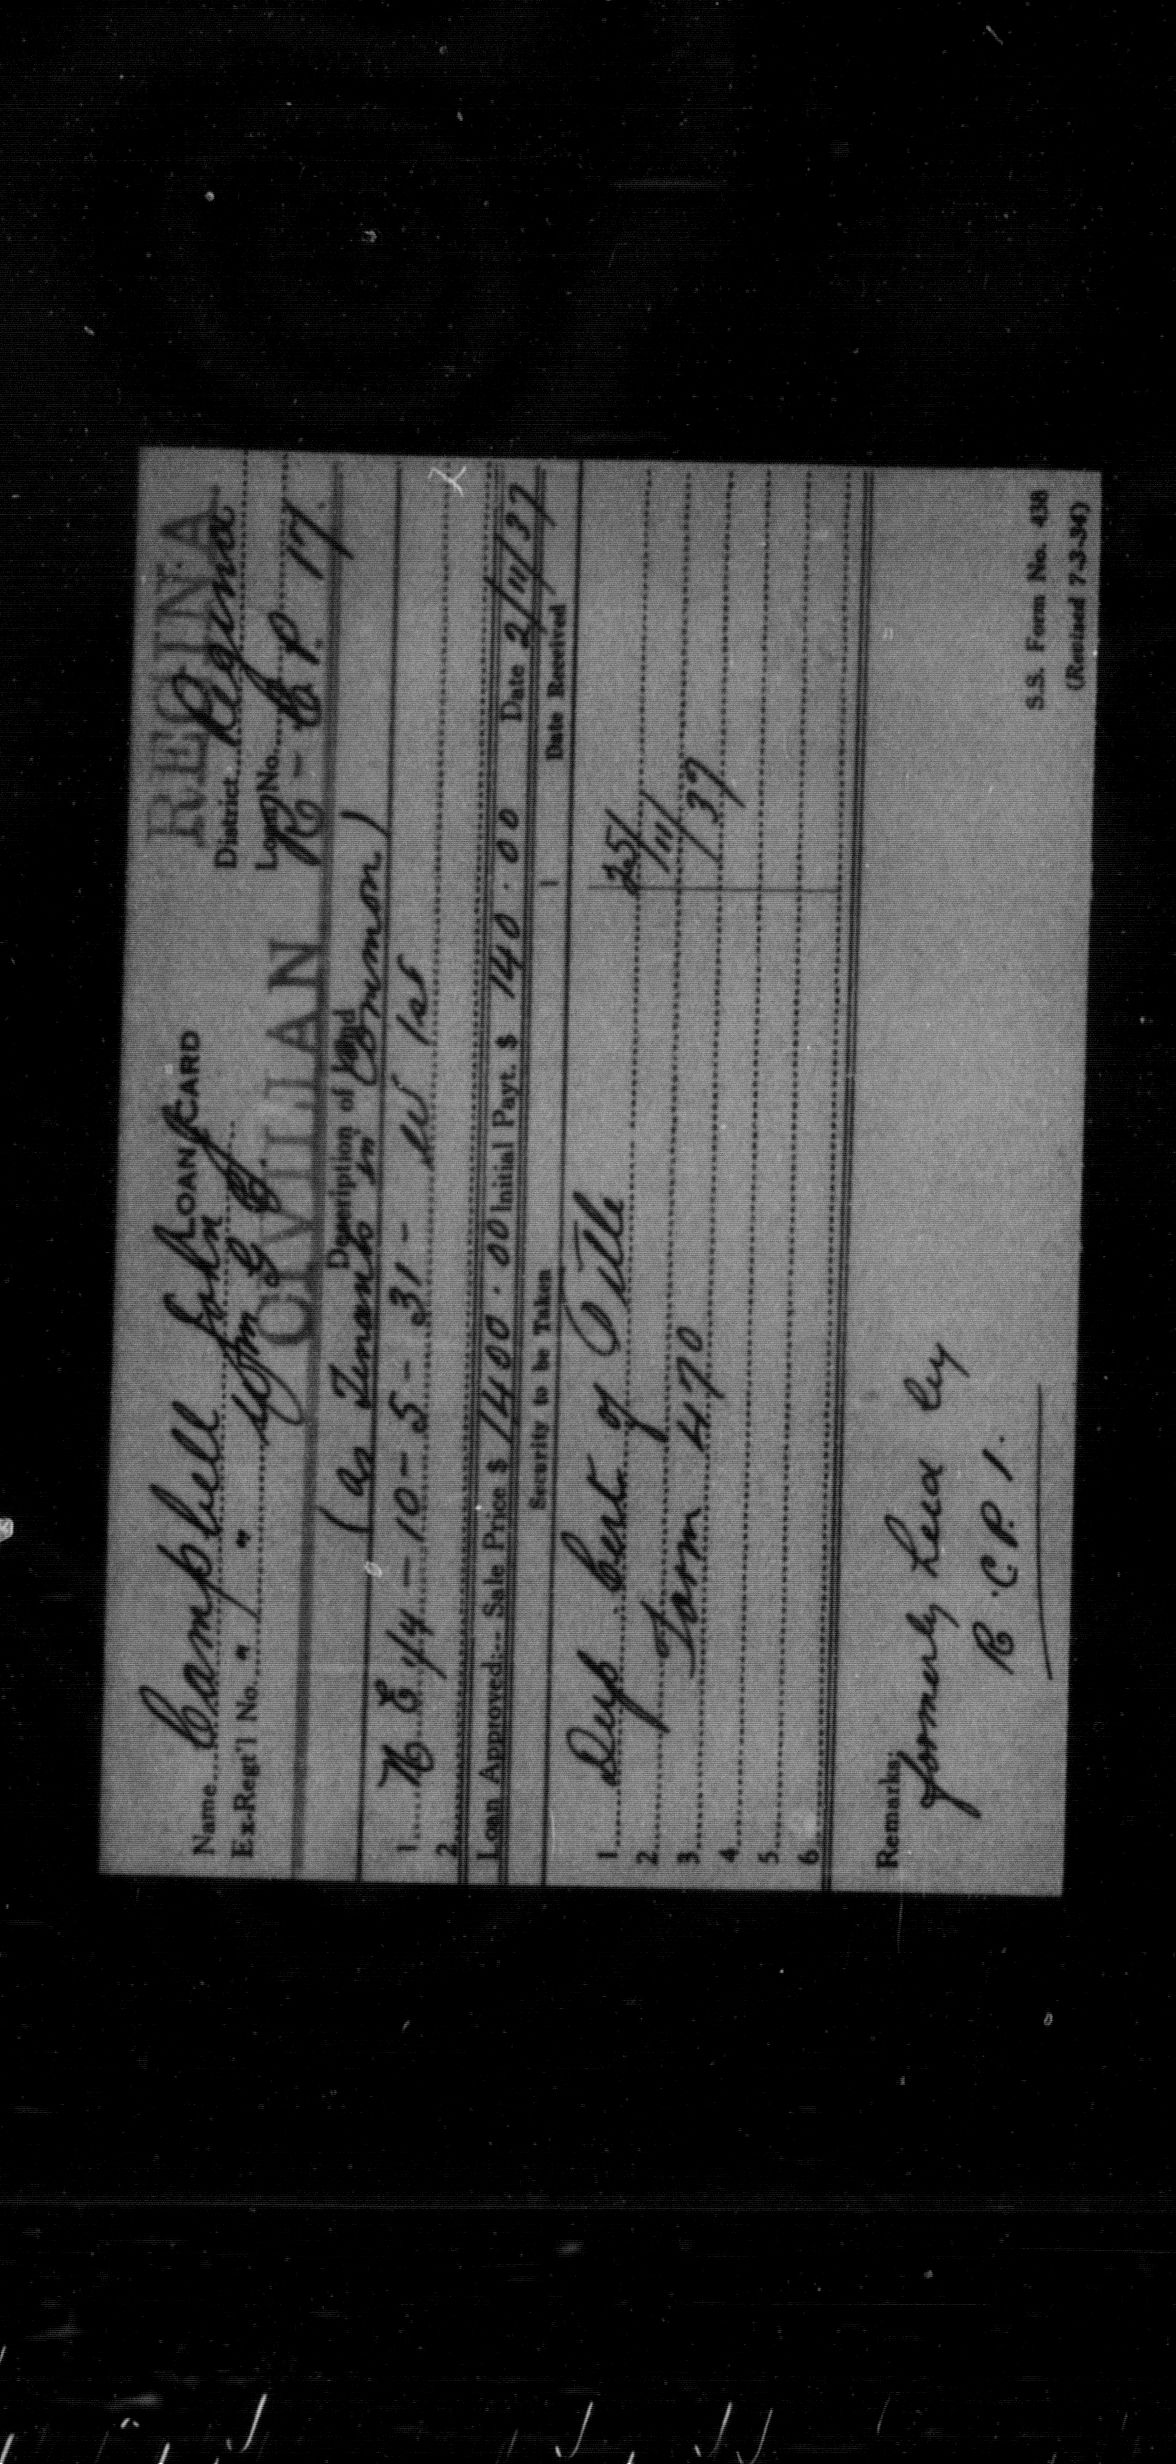 LOAN CARD
REGINA
Name Campbell John
District Regina
Ex-Reg't'l No. " / " Wm G C.
Loan No.
CIVILIAN
R - C P. 17.
Description of Land
(as Tenants in Common)
1 N E 1/4 - 10 - 5 - 31 - W 1st
2
Loan Approved:-- Sale Price $ 1400.00 Initial Payt. $ 140.00 Date 2/11/37
Security to be Taken Date Received
1 Dup. Cert. of Title 25/
2 11/
3 Form 470 /37
4
5
6
Remarks:
formerly held by
R.C.P. 1.
S.S. Form No. 438
(Revised 7-3-34)